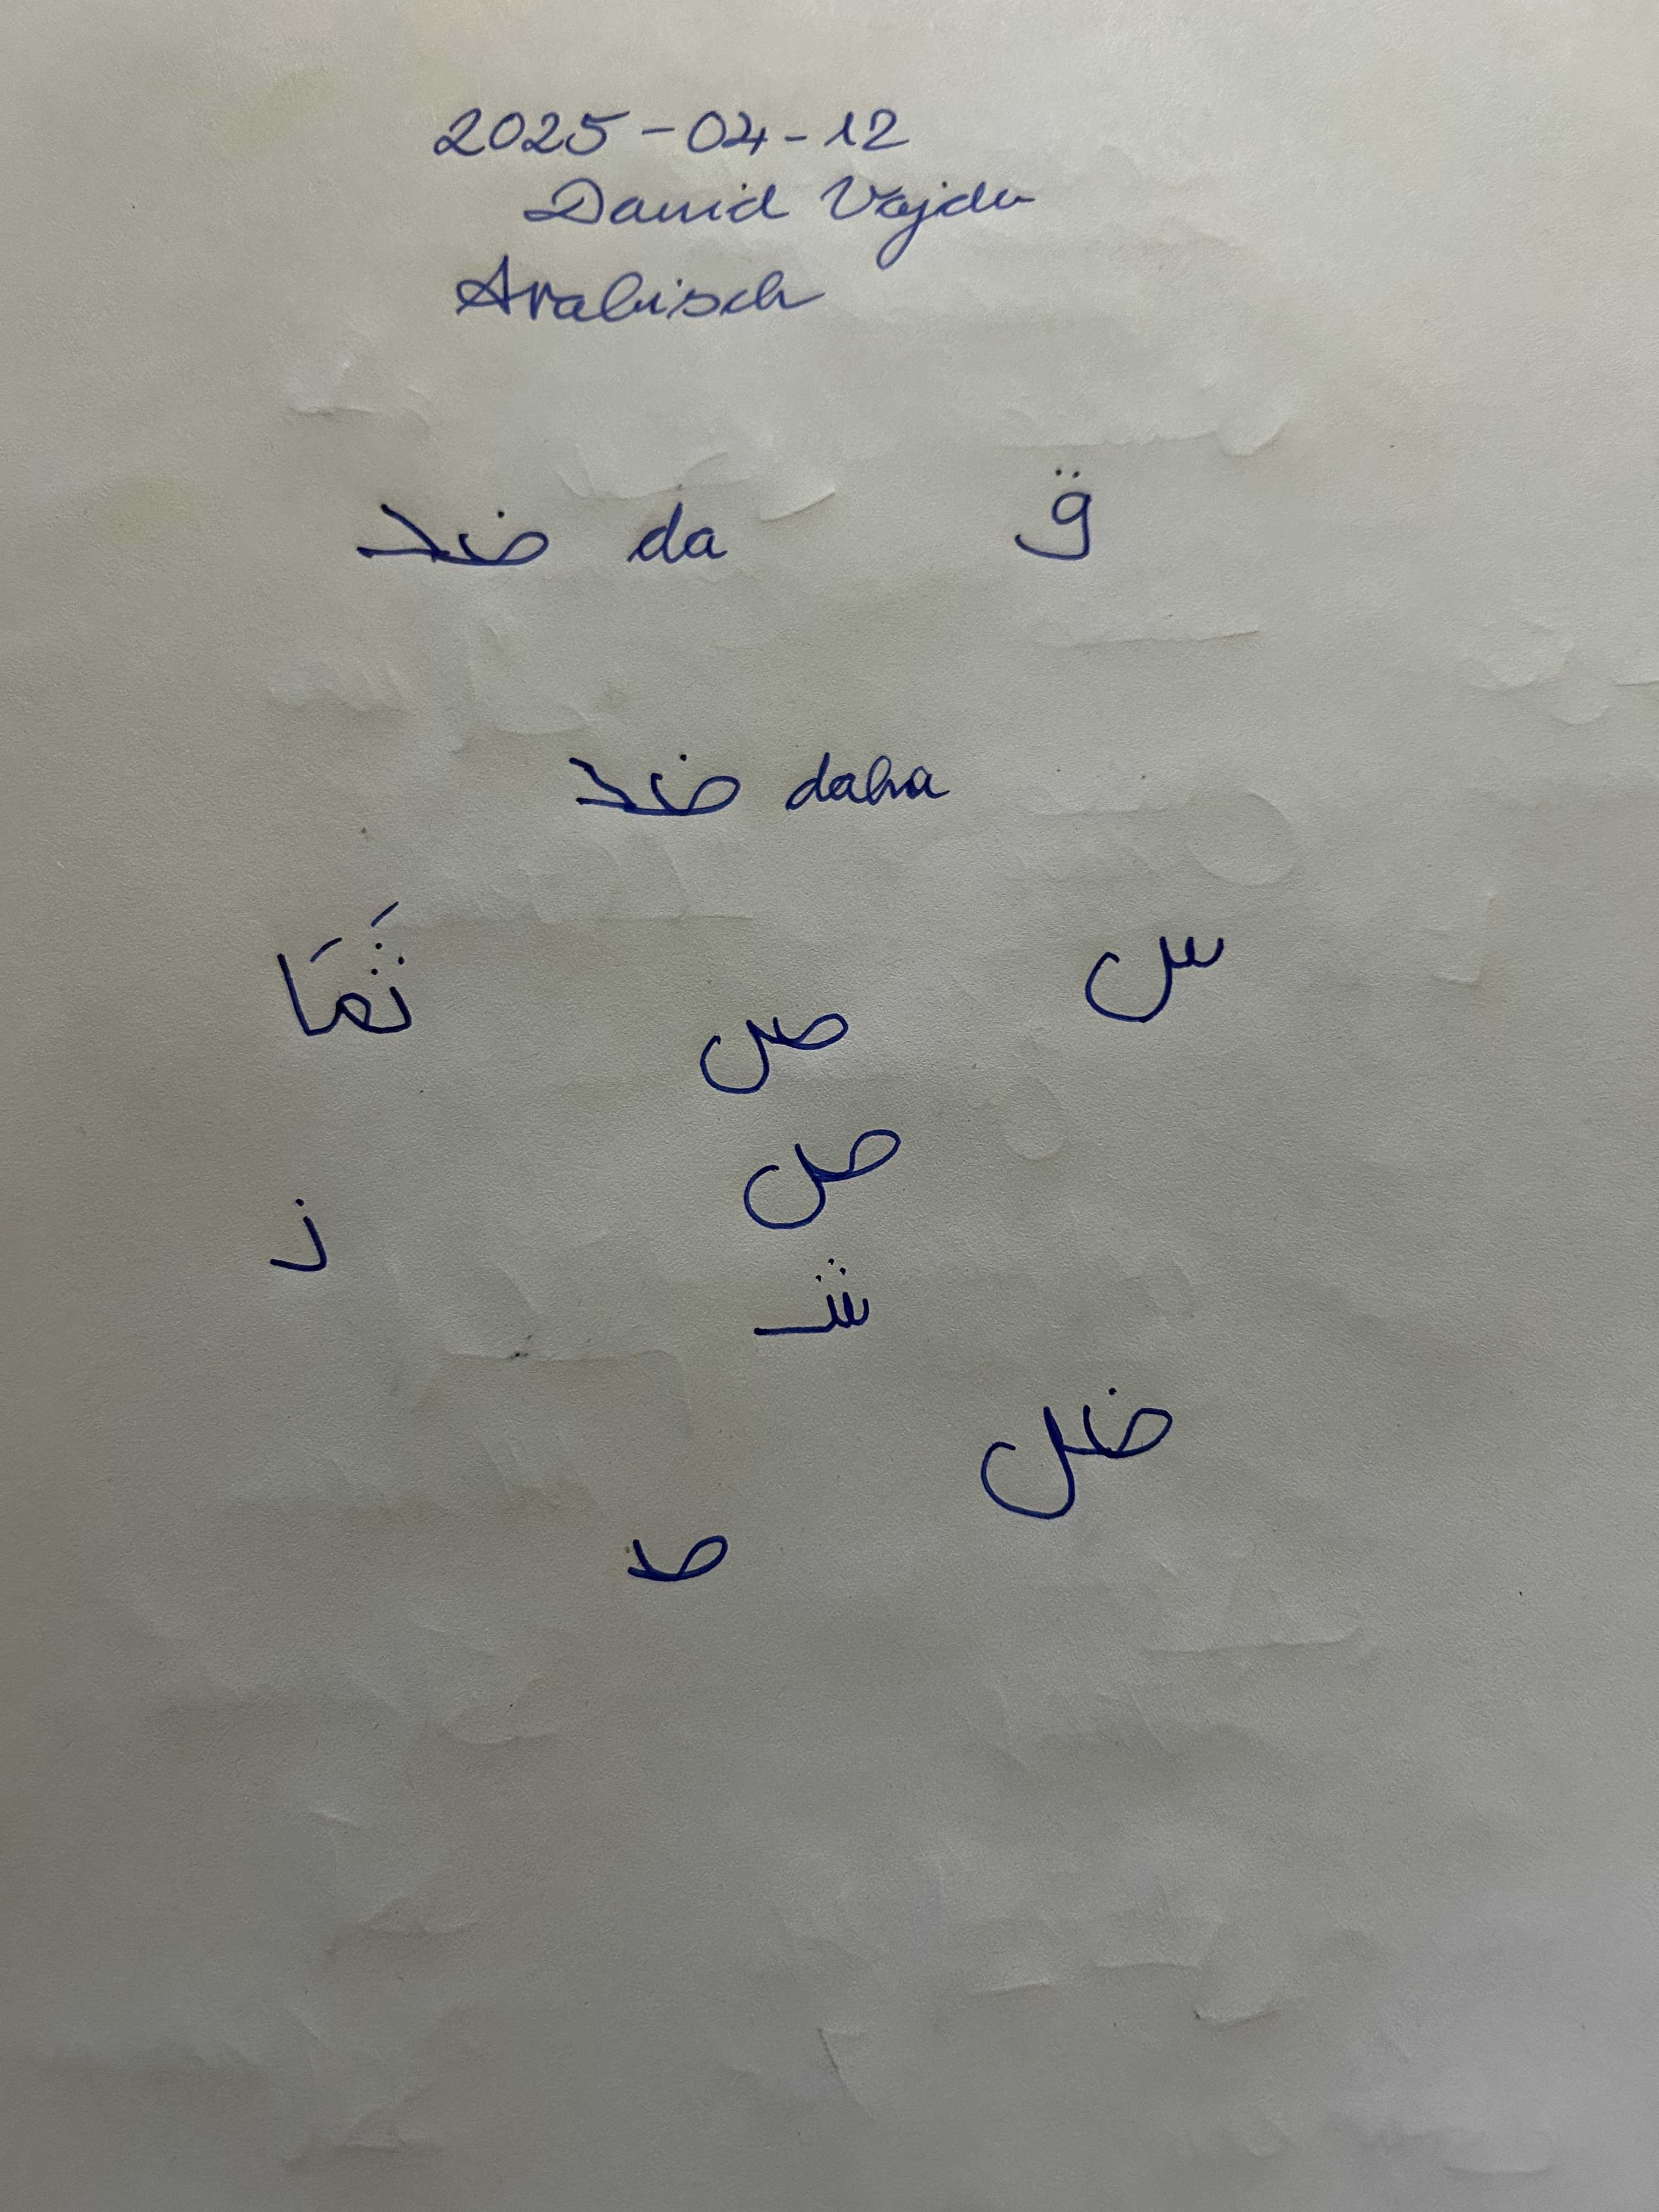 2025-04-12
David Vajda
Arabisch
ضد da ق
ضد daha
ثَمَا س
ص
ص
ز
شـ
ض
صـ